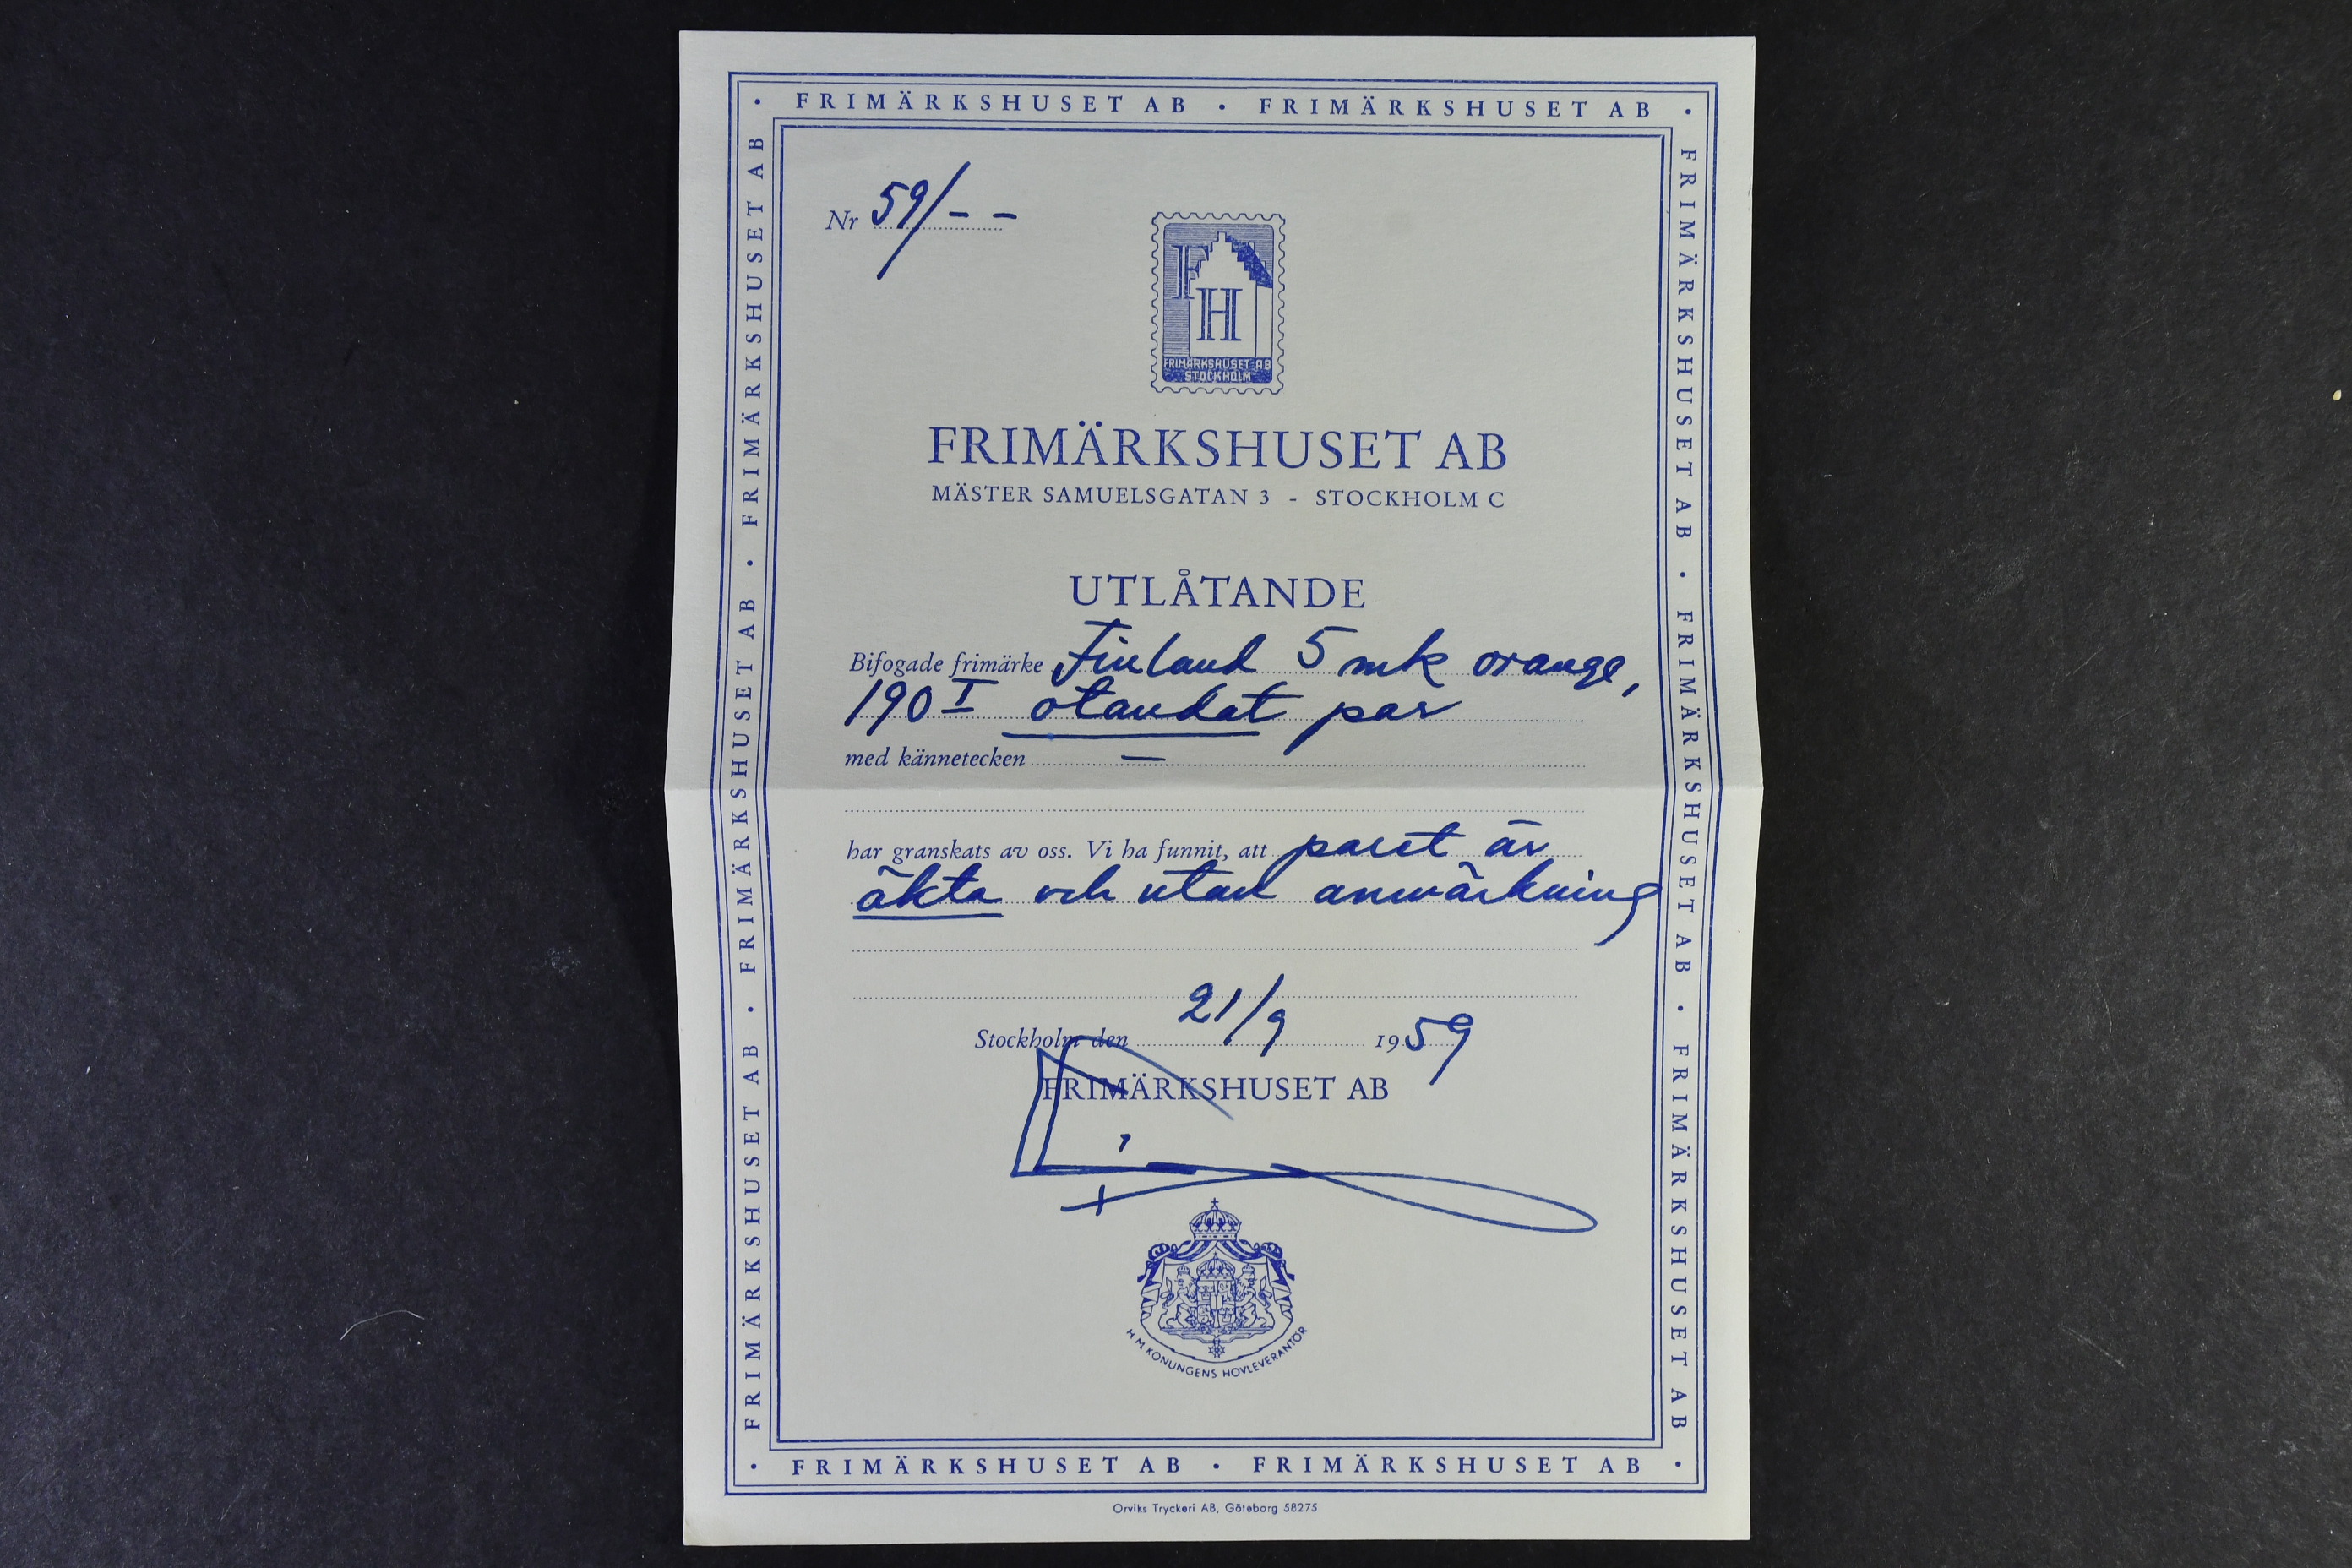 • FRIMÄRKSHUSET AB • FRIMÄRKSHUSET AB •
FRIMÄRKSHUSET AB • FRIMÄRKSHUSET AB • FRIMÄRKSHUSET AB
FRIMÄRKSHUSET AB • FRIMÄRKSHUSET AB • FRIMÄRKSHUSET AB
Nr 59/– –
F
H
FRIMÄRKSHUSET AB
STOCKHOLM
FRIMÄRKSHUSET AB
MÄSTER SAMUELSGATAN 3 - STOCKHOLM C
UTLÅTANDE
Bifogade frimärke Finland 5 mk orange,
190 I otandat par
med kännetecken —
har granskats av oss. Vi ha funnit, att paret är
äkta och utan anmärkning
Stockholm den 21/9 1959
FRIMÄRKSHUSET AB
H. M. KONUNGENS HOVLEVERANTÖR
• FRIMÄRKSHUSET AB • FRIMÄRKSHUSET AB •
Orviks Tryckeri AB, Göteborg 58275